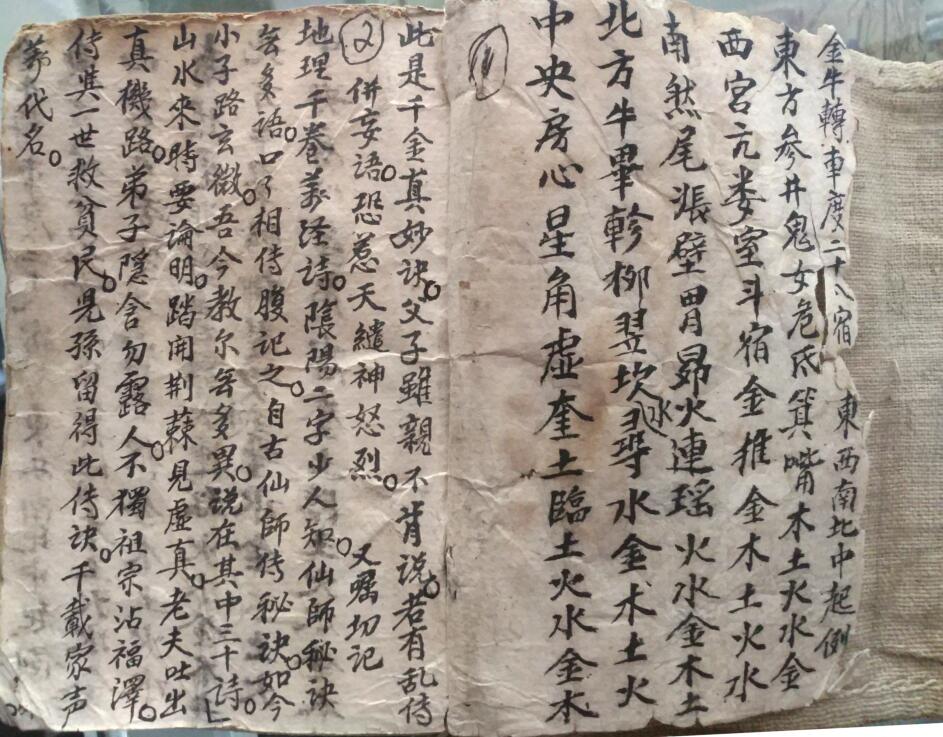 金牛轉車度二十八宿　東西南北中起例
東方參井鬼女危氐箕嘴木土火水金
西宮亢娄室斗宿金推金木土火水
南然尾張壁胃昴火連瑶火水金木土
北方牛畢軫柳翌坎水尋水金木土火
中央房心星角虚奎土臨土火水金木
(1)
此是千金真妙诀。父子雖親不肯说。若有乱传
(2)
併妄語。恐惹天譴神怒烈。又嘱切记
地理千卷義经诗。陰陽二字少人知。仙師秘诀
無多語。口了相传腹记之。自古仙師传秘诀。如今
小子路玄微。吾今教尔無多異。说在其中三十诗。
山水来時要論明。踏開荆蕀見虚真。老夫吐出
真機路。弟子隱含勿露人。不獨祖宗沾福澤。
传其二世救貧民。児孫留得此传诀。千載家声
代名。